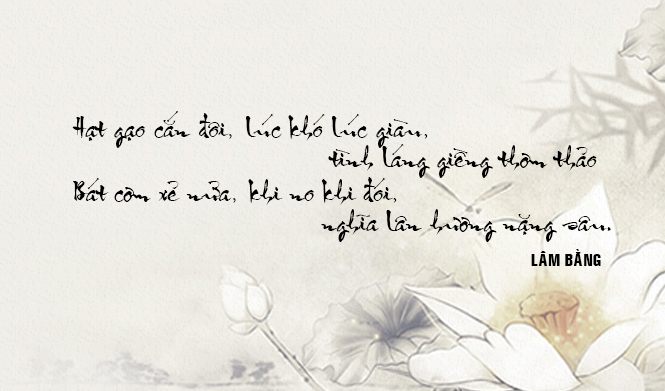 Hạt gạo cắn đôi, lúc khó lúc giàu,
tình láng giềng thơm thảo
Bát cơm xẻ nửa, khi no khi đói,
nghĩa lân hương nặng sâu.
LÂM BẰNG